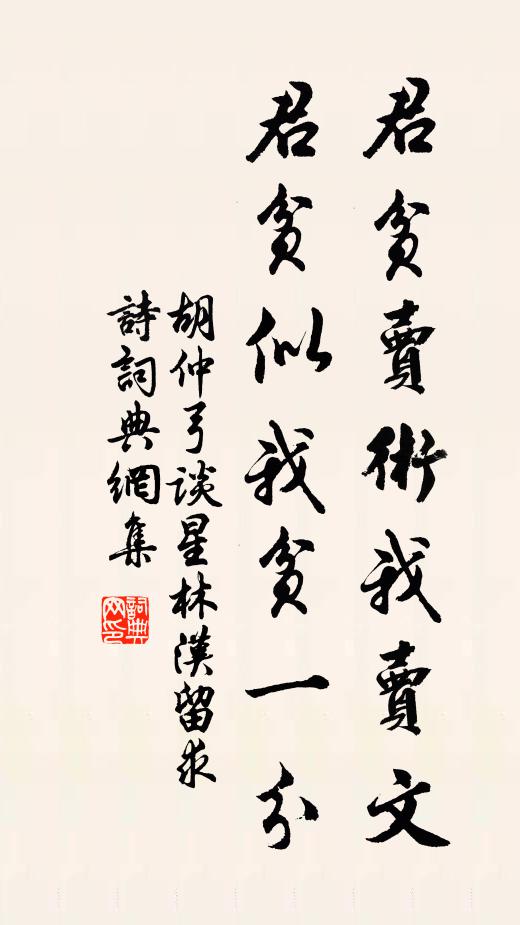 君貧賣術我賣文
君貧似我貧一分
胡仲弓談星林漢留求
詩詞典網集
詞典网印